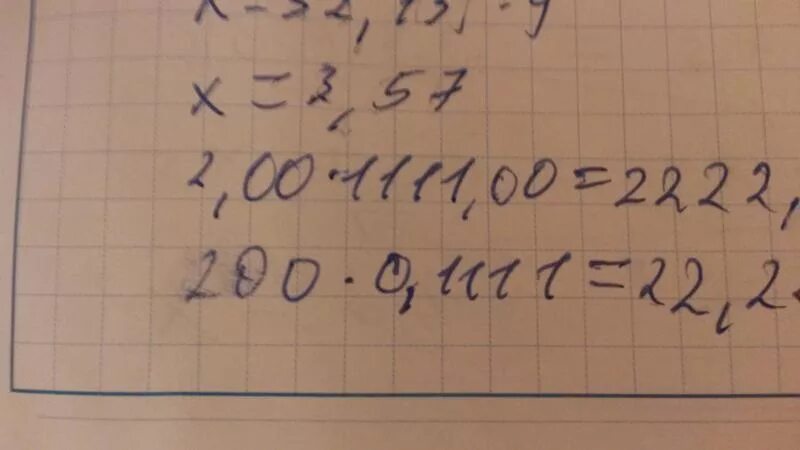 x = 3,57
2,00 · 1111,00 = 2222,
200 · 0,1111 = 22,2